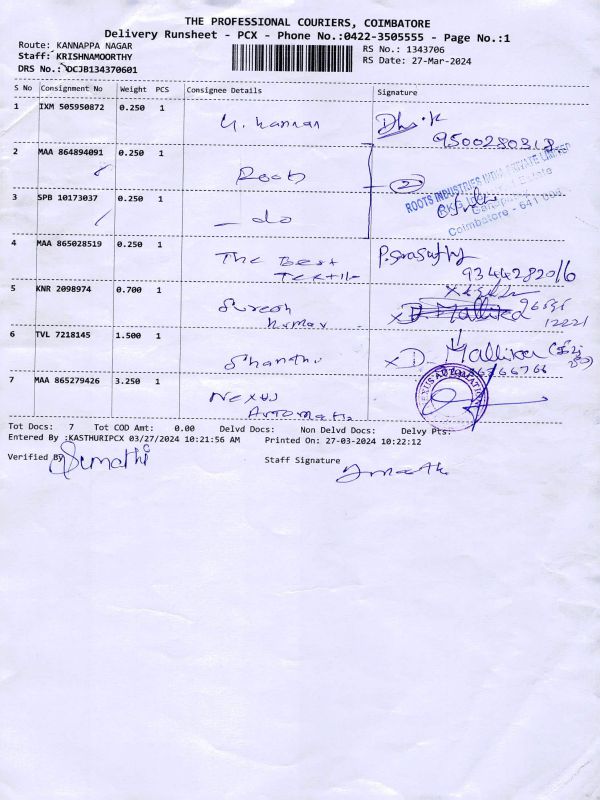 THE PROFESSIONAL COURIERS, COIMBATORE
Delivery Runsheet - PCX - Phone No.:0422-3505555 - Page No.:1
Route: KANNAPPA NAGAR RS No.: 1343706
Staff: KRISHNAMOORTHY RS Date: 27-Mar-2024
DRS No.: DCJB134370601
S No Consignment No Weight PCS Consignee Details Signature
1 IXM 505950872 0.250 1 Y. Kannan
9500280318
2 MAA 864894091 0.250 1 Roots 2
ROOTS INDUSTRIES INDIA PRIVATE LIMITED
3 SPB 10173037 0.250 1 - do
Coimbatore - 641 006
4 MAA 865028519 0.250 1 The Best Textile P. Saraswathy
9344282016
5 KNR 2098974 0.700 1 Suresh Kumar D. Mallika
12221
6 TVL 7218145 1.500 1 Shanthi x D. Mallika
7 MAA 865279426 3.250 1 Nexus Automati
NEXUS AUTOMATION
Tot Docs: 7 Tot COD Amt: 0.00 Delvd Docs: Non Delvd Docs: Delvy Pts:
Entered By :KASTHURIPCX 03/27/2024 10:21:56 AM Printed On: 27-03-2024 10:22:12
Verified By Sumathi Staff Signature